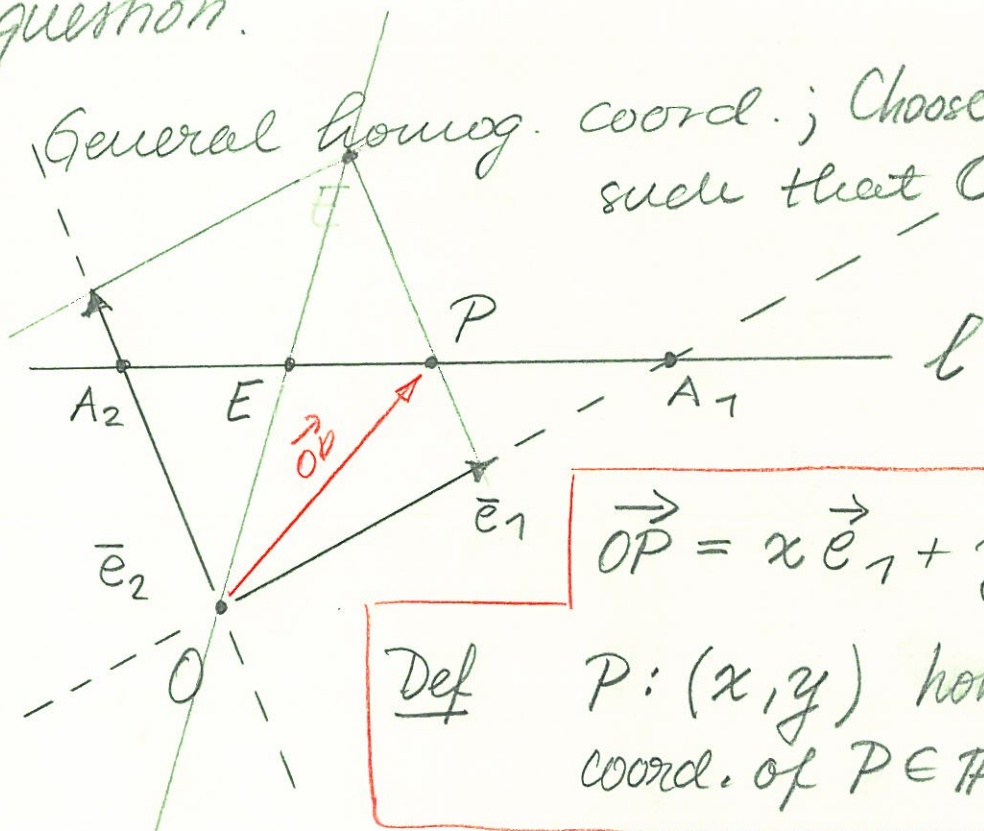 question.
General homog. coord.; Choose
such that
E
P
l
A₂
E
A₁
→OP
ē₁
ē₂
→OP = x →e₁ +
O
Def P: (x, y)
coord. of P ∈